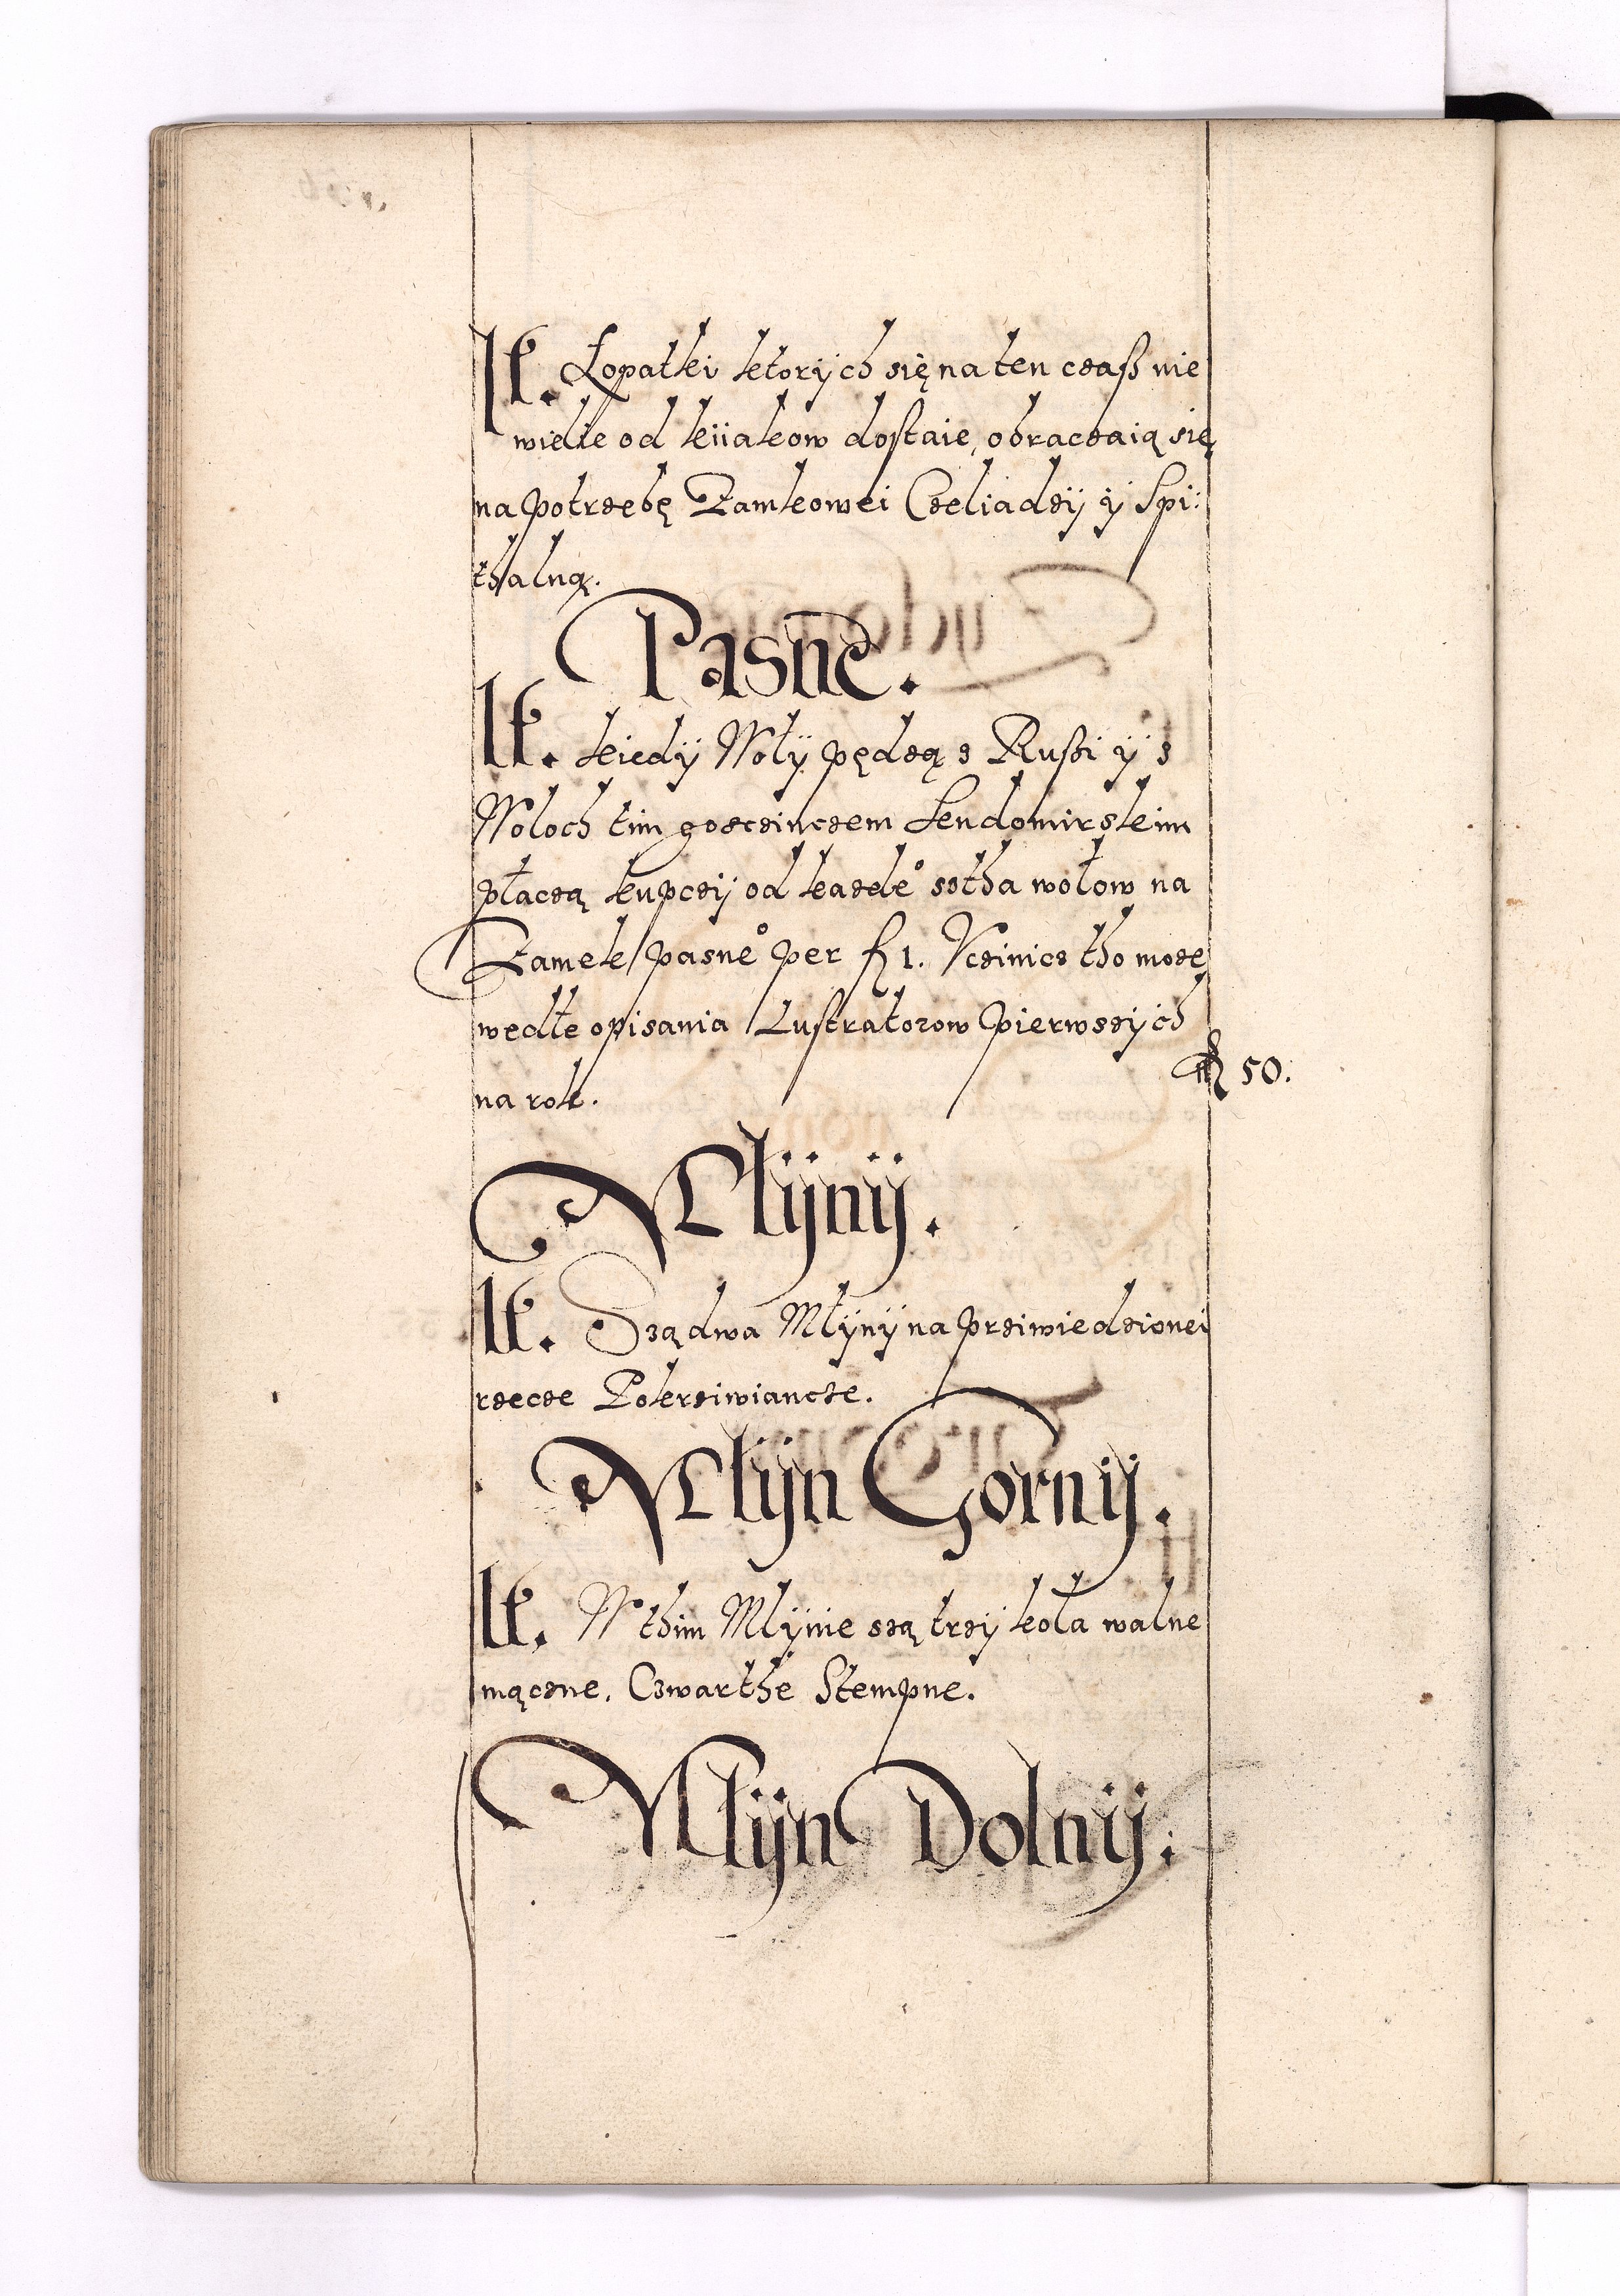 It. Łopatki ktorÿch się na ten czaß nie
wiele od kÿiakow dostaie, obraczaią się
na potrzebę Zamkowei Czeliadzÿ ÿ Spi:
thalną.
Pasne.
It. kiedÿ Wołÿ pędzą z Rußi ÿ z
Woloch tim gosczinczem Sendomirskim
płaczą kupczÿ od kazde° stha wołow na
Zamek pasne° per fl 1. Vczinicz tho mozę
wedłe opisania Lustratorow pierwszÿch
na rok.
fl 50.
Młÿnÿ.
It. Szą dwa Młÿnÿ na prziwiedzionei
rzecze Pokrziwiancze.
Młÿn Gornÿ.
It. W thim Mlÿnie szą trzÿ koła walne
mączne. Czwarthe Stempne.
Młÿn Dolnÿ: